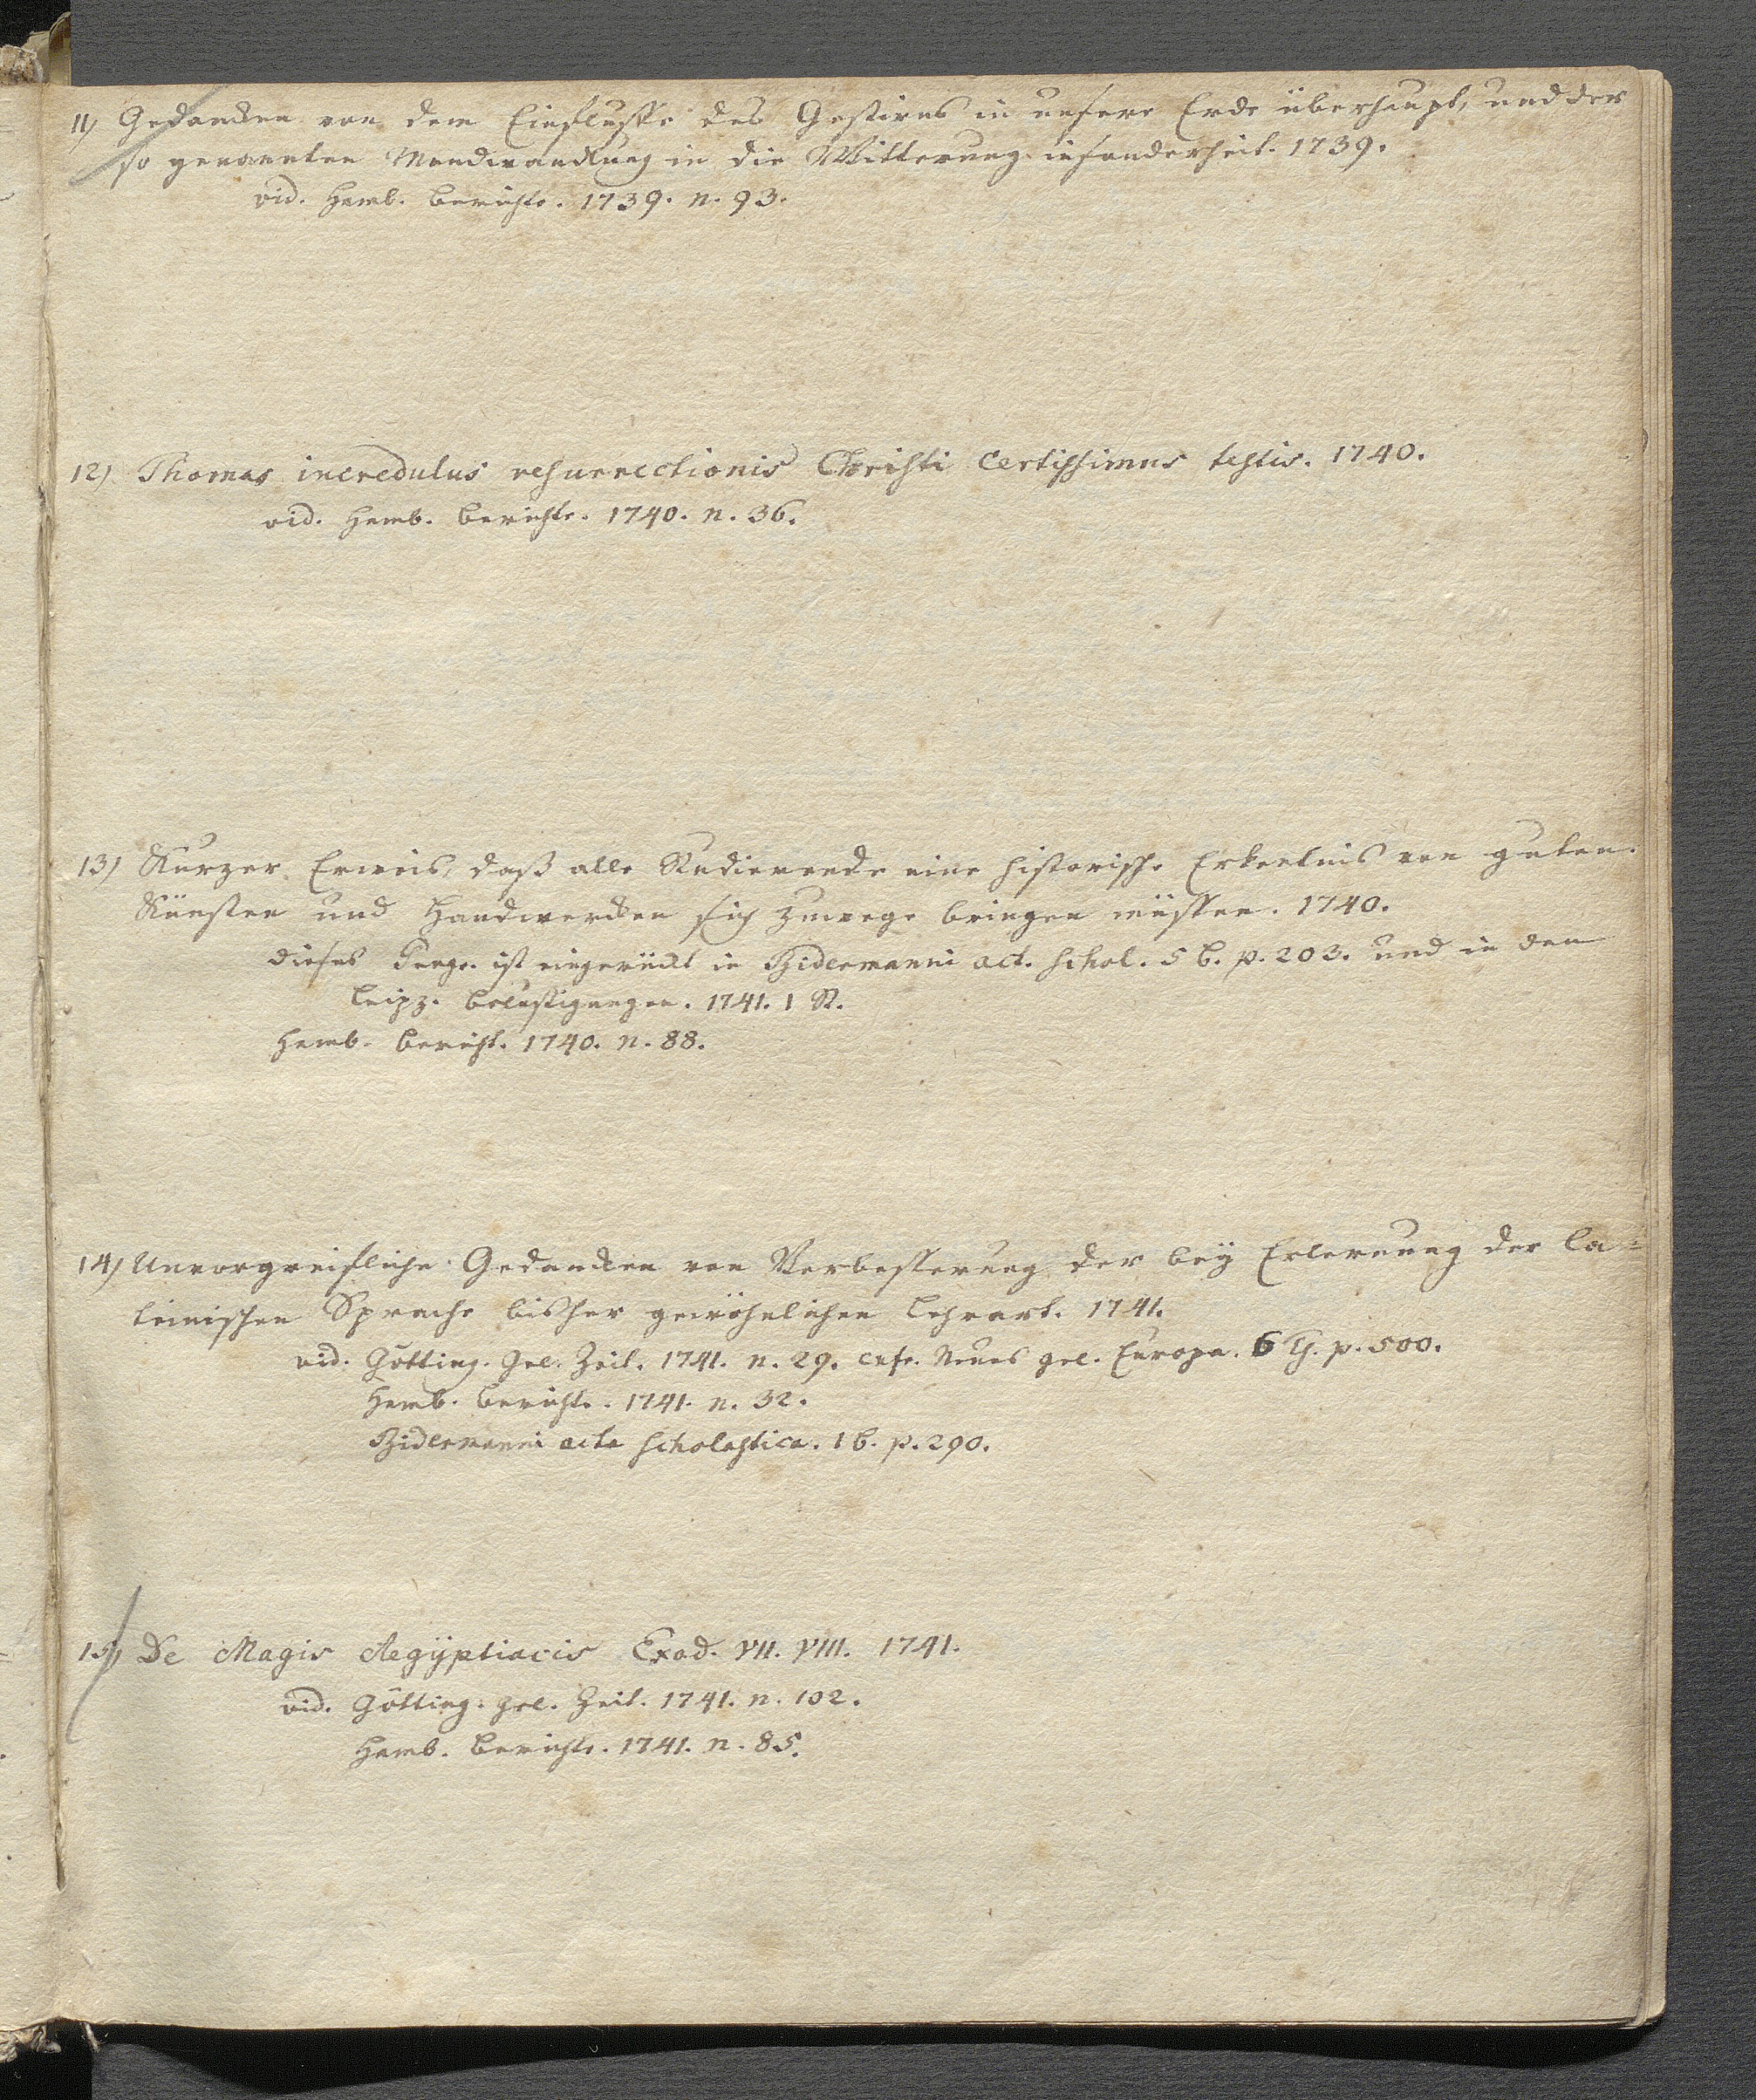 11) Gedancken von dem Einflusse des Gestirns in unsere Erde überhaupt, und der
so genannten Mondwandlung in die Witterung insonderheit. 1739.
vid. Hamb. Berichte. 1739. n. 93.
12) Thomas incredulus resurrectionis Christi certissimus testis. 1740.
vid. Hamb. Berichte. 1740. n. 36.
13) Kurzer Erweis, daß alle Studierende eine historische Erkentnis von guten
Künsten und Handwercken sich zuwege bringen müssen. 1740.
dieses Progr. ist eingerückt in Bidermanni act. schol. 5 B. p. 203. und in den
Leipz. Belustigungen. 1741. 1 St.
Hamb. Bericht. 1740. n. 88.
14) Unvorgreifliche Gedancken von Verbesserung der bey Erlernung der la=
teinischen Sprache bisher gewöhnlichen Lehrart. 1741.
vid. Götting. Gel. Zeit. 1741. n. 29. cnfr. Neues gel. Europa. 6 Th. p. 500.
Hamb. Berichte. 1741. n. 32.
Bidermanni acta scholastica. 1 B. p. 290.
15) De Magis Aegÿptiacis Exod. VII. VIII. 1741.
vid. Götting. gel. Zeit. 1741. n. 102.
Hamb. Berichte. 1741. n. 85.